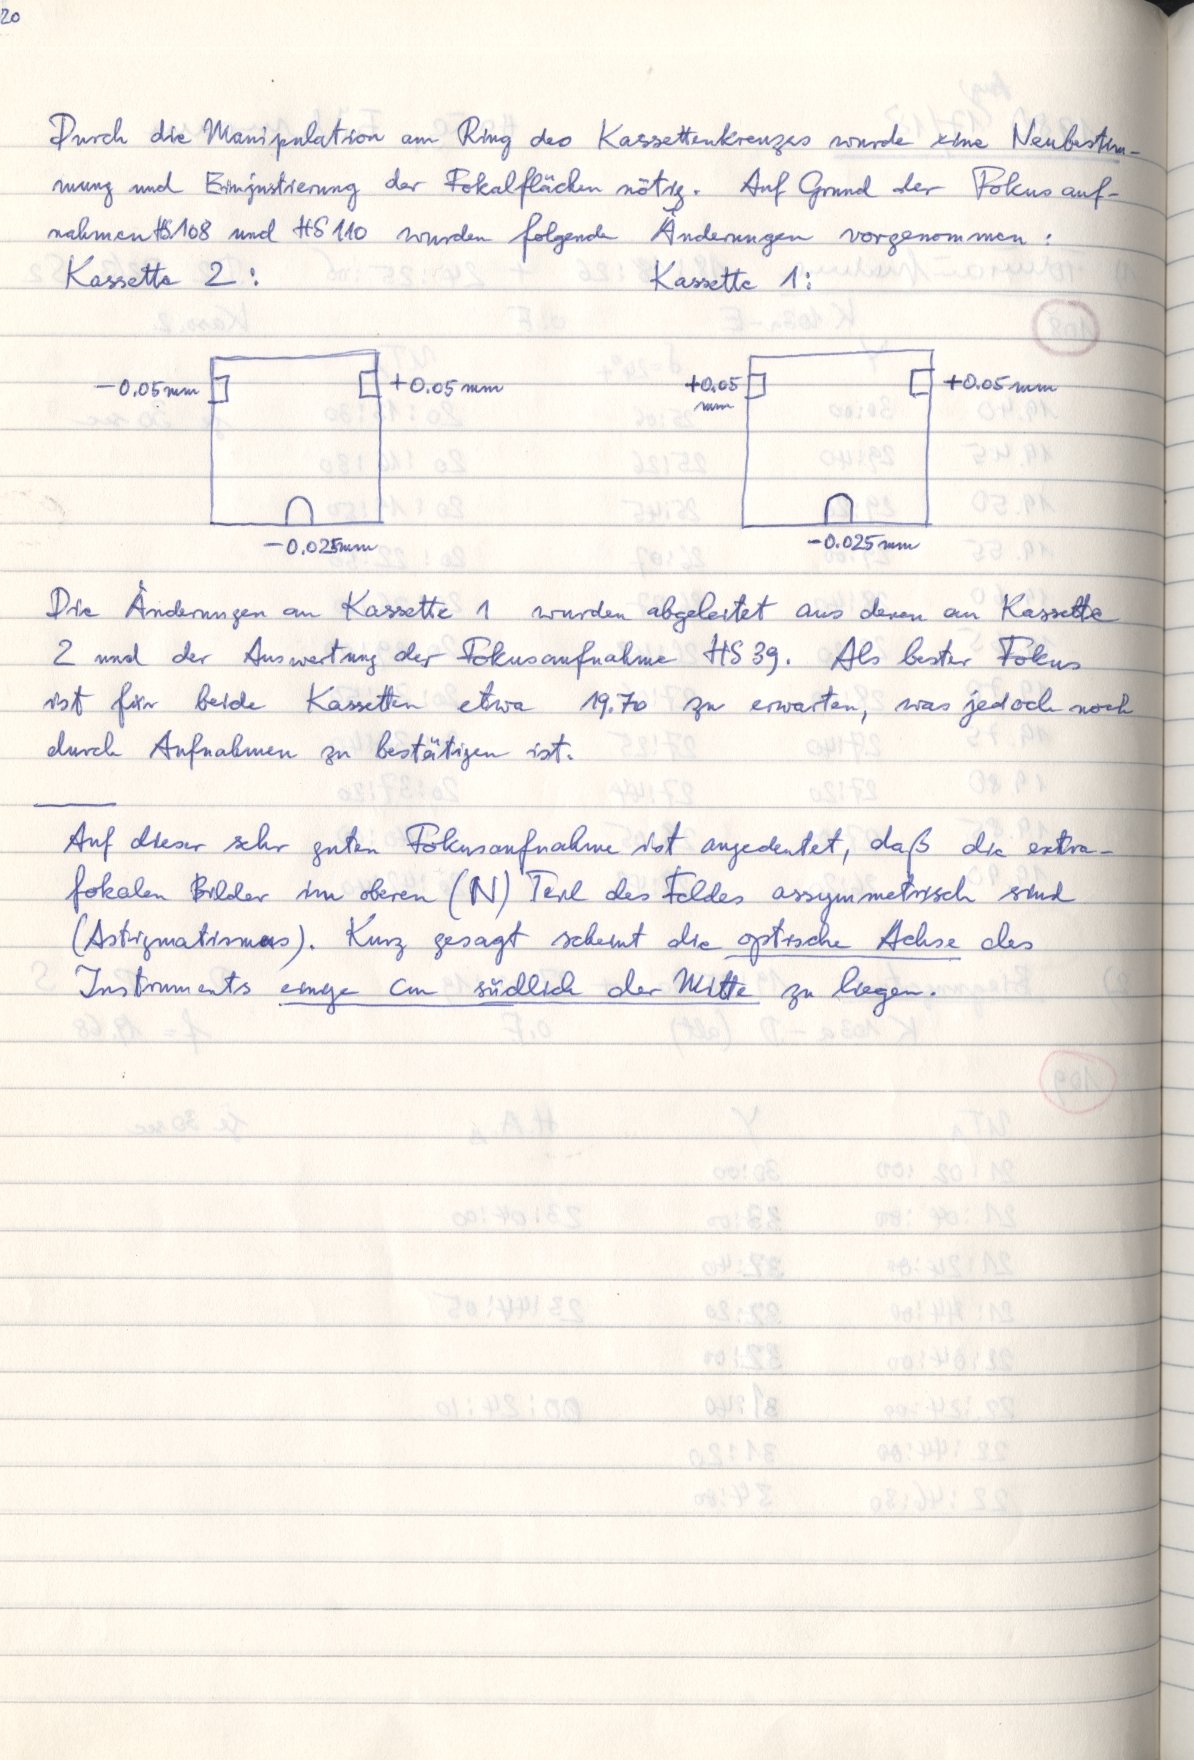 20
Durch die Manipulation am Ring des Kassettenkreuzes wurde eine Neubestim-
mung und Einjustierung der Fokalflächen nötig. Auf Grund der Fokusauf-
nahmen HS108 und HS110 wurden folgende Änderungen vorgenommen:
Kassette 2: Kassette 1:
-0.05mm +0.05mm +0.05 mm +0.05mm
-0.025mm -0.025mm
Die Änderungen an Kassette 1 wurden abgeleitet aus denen an Kassette
2 und der Auswertung der Fokusaufnahme HS39. Als bester Fokus
ist für beide Kassetten etwa 19.70 zu erwarten, was jedoch noch
durch Aufnahmen zu bestätigen ist.
Auf dieser sehr guten Fokusaufnahme ist angedeutet, daß die extra-
fokalen Bilder im oberen (N) Teil des Feldes assymmetrisch sind
(Astigmatismus). Kurz gesagt scheint die optische Achse des
Instruments einige cm südlich der Mitte zu liegen.